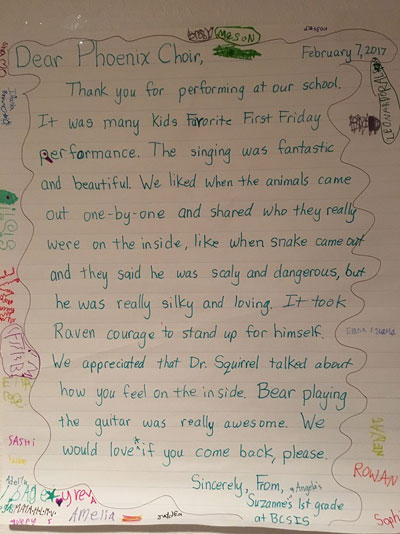 MASON
Dear Phoenix Choir,
February 7, 2017
Thank you for performing at our school.
It was many Kids Favorite First Friday
performance. The singing was fantastic
and beautiful. We liked when the animals came
out one-by-one and shared who they really
were on the inside, like when snake came out
and they said he was scaly and dangerous, but
he was really silky and loving. It took
Raven courage to stand up for himself.
We appreciated that Dr. Squirrel talked about
how you feel on the inside. Bear playing
the guitar was really awesome. We
would love * if you come back, please.
Sincerely, From,
& Angela's
Suzanne's 1st grade
at BCSIS
SASHI
ROWAN
Amelia